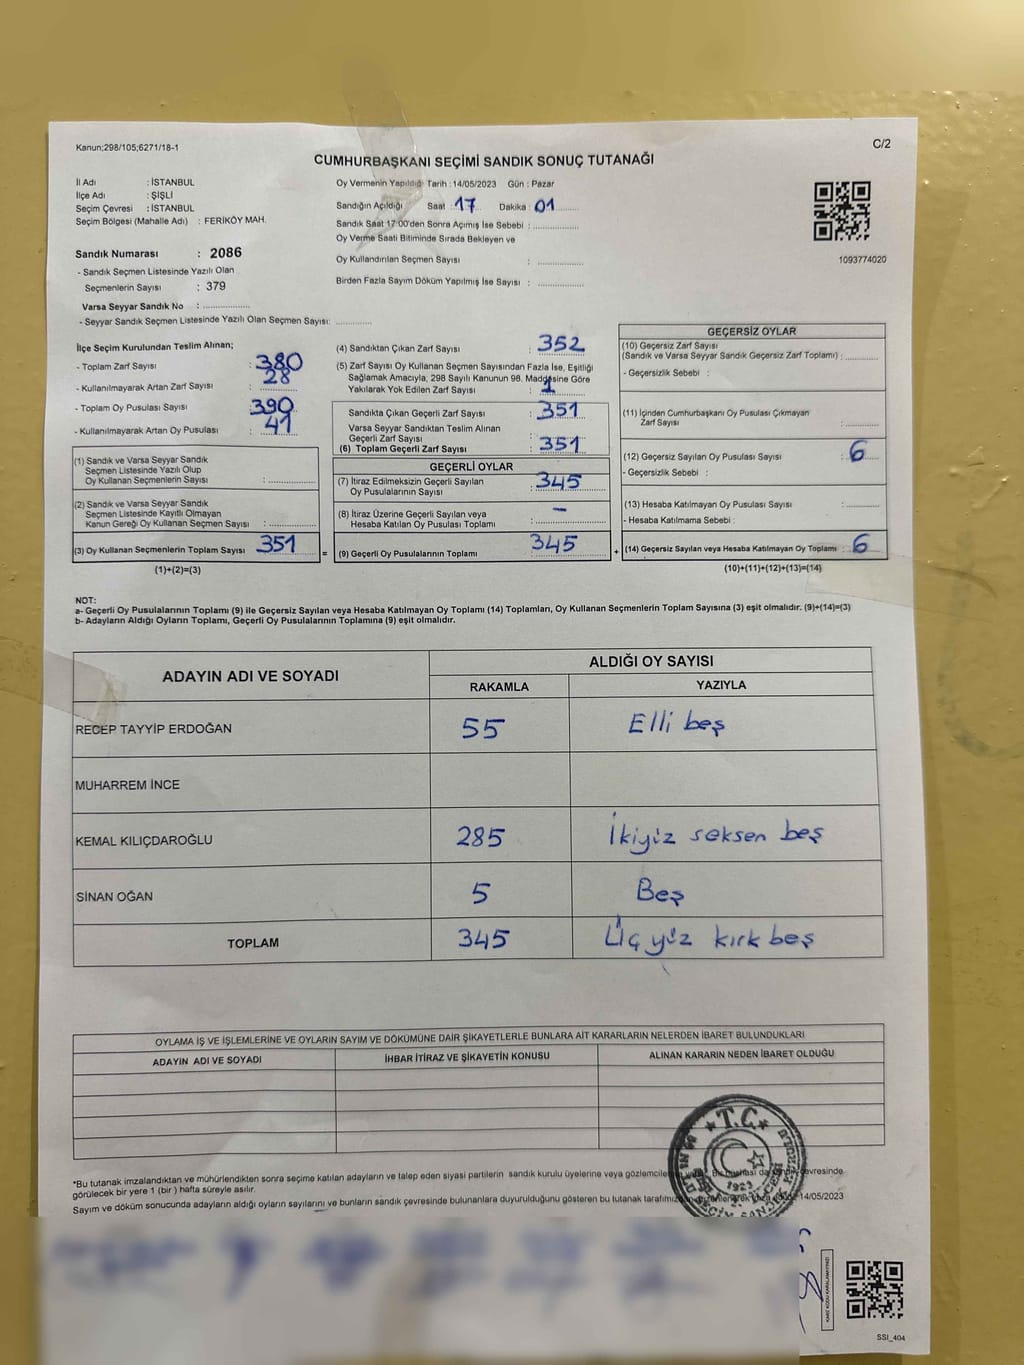 Kanun;298/105;6271/18-1
C/2
CUMHURBAŞKANI SEÇİMİ SANDIK SONUÇ TUTANAĞI
İl Adı : İSTANBUL
İlçe Adı : ŞİŞLİ
Seçim Çevresi : İSTANBUL
Seçim Bölgesi (Mahalle Adı) : FERİKÖY MAH.
Sandık Numarası : 2086
- Sandık Seçmen Listesinde Yazılı Olan
Seçmenlerin Sayısı : 379
Varsa Seyyar Sandık No : ..............
- Seyyar Sandık Seçmen Listesinde Yazılı Olan Seçmen Sayısı: ............
Oy Vermenin Yapıldığı Tarih : 14/05/2023 Gün : Pazar
Sandığın Açıldığı Saat : 17 Dakika : 01
Sandık Saat 17:00'den Sonra Açımış İse Sebebi : ..............
Oy Verme Saati Bitiminde Sırada Bekleyen ve
Oy Kullandırılan Seçmen Sayısı : ..............
Birden Fazla Sayım Döküm Yapılmış İse Sayısı : ..............
1093774020
İlçe Seçim Kurulundan Teslim Alınan;
- Toplam Zarf Sayısı : 380
- Kullanılmayarak Artan Zarf Sayısı : 28
- Toplam Oy Pusulası Sayısı : 390
- Kullanılmayarak Artan Oy Pusulası : 41
(1) Sandık ve Varsa Seyyar Sandık
Seçmen Listesinde Yazılı Olup
Oy Kullanan Seçmenlerin Sayısı : ..............
(2) Sandık ve Varsa Seyyar Sandık
Seçmen Listesinde Kayıtlı Olmayan
Kanun Gereği Oy Kullanan Seçmen Sayısı : ..............
(3) Oy Kullanan Seçmenlerin Toplam Sayısı : 351 =
(1)+(2)=(3)
(4) Sandıktan Çıkan Zarf Sayısı : 352
(5) Zarf Sayısı Oy Kullanan Seçmen Sayısından Fazla İse, Eşitliği
Sağlamak Amacıyla, 298 Sayılı Kanunun 98. Maddesine Göre
Yakılarak Yok Edilen Zarf Sayısı : 1
Sandıkta Çıkan Geçerli Zarf Sayısı : 351
Varsa Seyyar Sandıktan Teslim Alınan
Geçerli Zarf Sayısı : ..............
(6) Toplam Geçerli Zarf Sayısı : 351
GEÇERLİ OYLAR
(7) İtiraz Edilmeksizin Geçerli Sayılan
Oy Pusulalarının Sayısı : 345
(8) İtiraz Üzerine Geçerli Sayılan veya
Hesaba Katılan Oy Pusulası Toplamı : -
(9) Geçerli Oy Pusulalarının Toplamı : 345 +
GEÇERSİZ OYLAR
(10) Geçersiz Zarf Sayısı
(Sandık ve Varsa Seyyar Sandık Geçersiz Zarf Toplamı) : ..............
- Geçersizlik Sebebi :
(11) İçinden Cumhurbaşkanı Oy Pusulası Çıkmayan
Zarf Sayısı : ..............
(12) Geçersiz Sayılan Oy Pusulası Sayısı : 6
- Geçersizlik Sebebi :
(13) Hesaba Katılmayan Oy Pusulası Sayısı : ..............
- Hesaba Katılmama Sebebi :
(14) Geçersiz Sayılan veya Hesaba Katılmayan Oy Toplamı : 6
(10)+(11)+(12)+(13)=(14)
NOT:
a- Geçerli Oy Pusulalarının Toplamı (9) ile Geçersiz Sayılan veya Hesaba Katılmayan Oy Toplamı (14) Toplamları, Oy Kullanan Seçmenlerin Toplam Sayısına (3) eşit olmalıdır. (9)+(14)=(3)
b- Adayların Aldığı Oyların Toplamı, Geçerli Oy Pusulalarının Toplamına (9) eşit olmalıdır.
ADAYIN ADI VE SOYADI
ALDIĞI OY SAYISI
RAKAMLA YAZIYLA
RECEP TAYYİP ERDOĞAN 55 Elli beş
MUHARREM İNCE
KEMAL KILIÇDAROĞLU 285 İkiyiz seksen beş
SİNAN OĞAN 5 Beş
TOPLAM 345 Üç yüz kırk beş
OYLAMA İŞ VE İŞLEMLERİNE VE OYLARIN SAYIM VE DÖKÜMÜNE DAİR ŞİKAYETLERLE BUNLARA AİT KARARLARIN NELERDEN İBARET BULUNDUKLARI
ADAYIN ADI VE SOYADI İHBAR İTİRAZ VE ŞİKAYETİN KONUSU ALINAN KARARIN NEDEN İBARET OLDUĞU
*Bu tutanak imzalandıktan ve mühürlendikten sonra seçime katılan adayların ve talep eden siyasi partilerin sandık kurulu üyelerine veya gözlemcilerine çevresinde
görülecek bir yere 1 (bir) hafta süreyle asılır.
Sayım ve döküm sonucunda adayların aldığı oyların sayılarını ve bunların sandık çevresinde bulunanlara duyurulduğunu gösteren bu tutanak tarafımızdan 14/05/2023
T.C.
1923
SSI_404